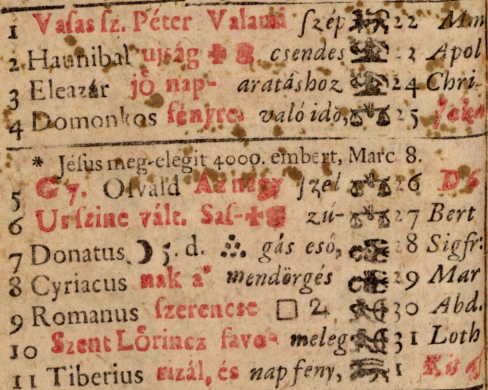 1 Vasas sz. Péter Valami szép 22 Mm
2 Hannibal ujság csendes 22 Apol
3 Eleazár jő nap- aratáshoz 24 Chri.
4 Domonkos fényre való idő, 25 Jak
* Jésus meg-elégit 4000. embert, Marc 8.
5 G 7. Osvald Az nagy szél 26 D 6
6 Urszine vált. Sas- zú- 27 Bert
7 Donatus ☽ 5. d. gás eső, 28 Sigfr:
8 Cyriacus nak a' mendörgés 29 Mar
9 Romanus szerencse □ ♃ 30 Abd.
10 Szent Lőrincz favo- meleg 31 Loth
11 Tiberius rizál, és nap fény, 1